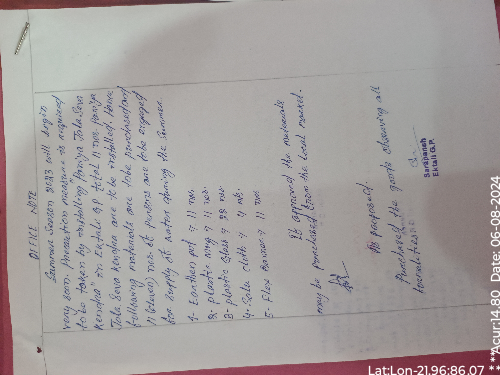 OFFICE NOTE
Summer Season 2023 will begin
very soon. Precaution measure is required
to be taken by installing Paniya Jala Seva
Kendra" in Ektali GP. total 11 nos. Paniya
Jala Seva Kendra are to be installed, hence
following materials are to be purchased and
11 (eleven) nos. of persons are to be engaged
for supply of water during the summer.
1- Earthen pot → 11 nos.
2- plastic mug → 11 nos.
3- plastic Glass → 22 nos.
4- Salu cloth → 4 mt.
5- Flex Banner → 11 nos.
If approved the materials
may be purchased from the local market.
As proposed.
Purchased the goods observing all
formalities
Sarapanch
Ektali G.P.
Lat:Lon-21.96:86.07
**Acur:14.80 Date: 06-08-2024 **